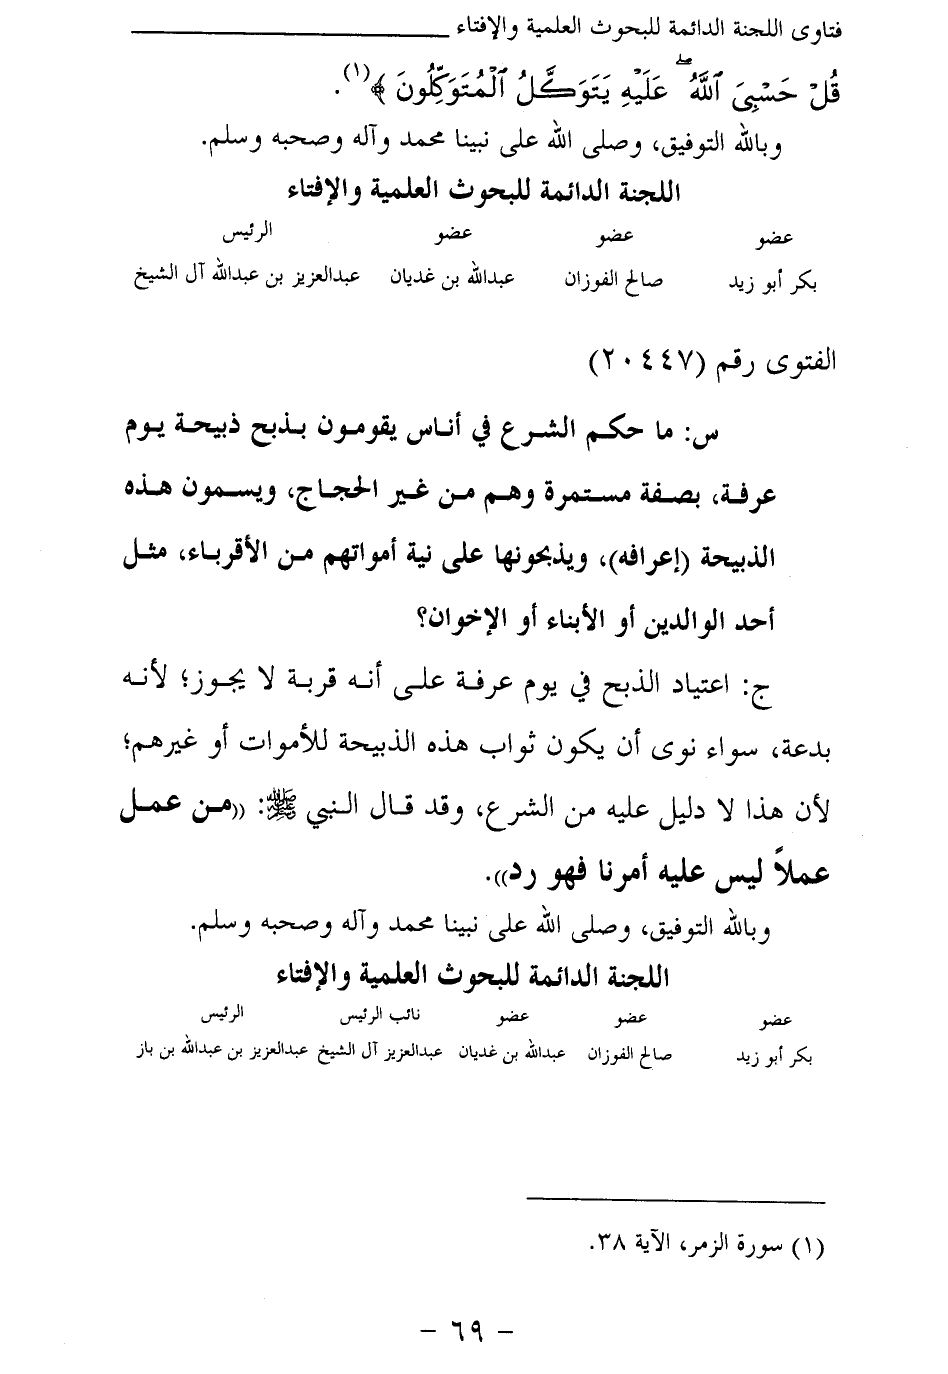 فتاوى اللجنة الدائمة للبحوث العلمية والإفتاء
قُلْ حَسْبِيَ ٱللَّهُۖ عَلَيْهِ يَتَوَكَّلُ ٱلْمُتَوَكِّلُونَ ﴾(١).
وبالله التوفيق، وصلى الله على نبينا محمد وآله وصحبه وسلم.
اللجنة الدائمة للبحوث العلمية والإفتاء
عضو عضو عضو الرئيس
بكر أبو زيد صالح الفوزان عبدالله بن غديان عبدالعزيز بن عبدالله آل الشيخ
الفتوى رقم (٢٠٤٤٧)
س: ما حكم الشرع في أناس يقومون بذبح ذبيحة يوم
عرفة، بصفة مستمرة وهم من غير الحجاج، ويسمون هذه
الذبيحة (إعرافه)، ويذبحونها على نية أمواتهم من الأقرباء، مثل
أحد الوالدين أو الأبناء أو الإخوان؟
ج: اعتياد الذبح في يوم عرفة على أنه قربة لا يجوز؛ لأنه
بدعة، سواء نوى أن يكون ثواب هذه الذبيحة للأموات أو غيرهم؛
لأن هذا لا دليل عليه من الشرع، وقد قال النبي ﷺ: ((من عمل
عملاً ليس عليه أمرنا فهو رد)).
وبالله التوفيق، وصلى الله على نبينا محمد وآله وصحبه وسلم.
اللجنة الدائمة للبحوث العلمية والإفتاء
عضو عضو عضو نائب الرئيس الرئيس
بكر أبو زيد صالح الفوزان عبدالله بن غديان عبدالعزيز آل الشيخ عبدالعزيز بن عبدالله بن باز
(١) سورة الزمر، الآية ٣٨.
- ٦٩ -